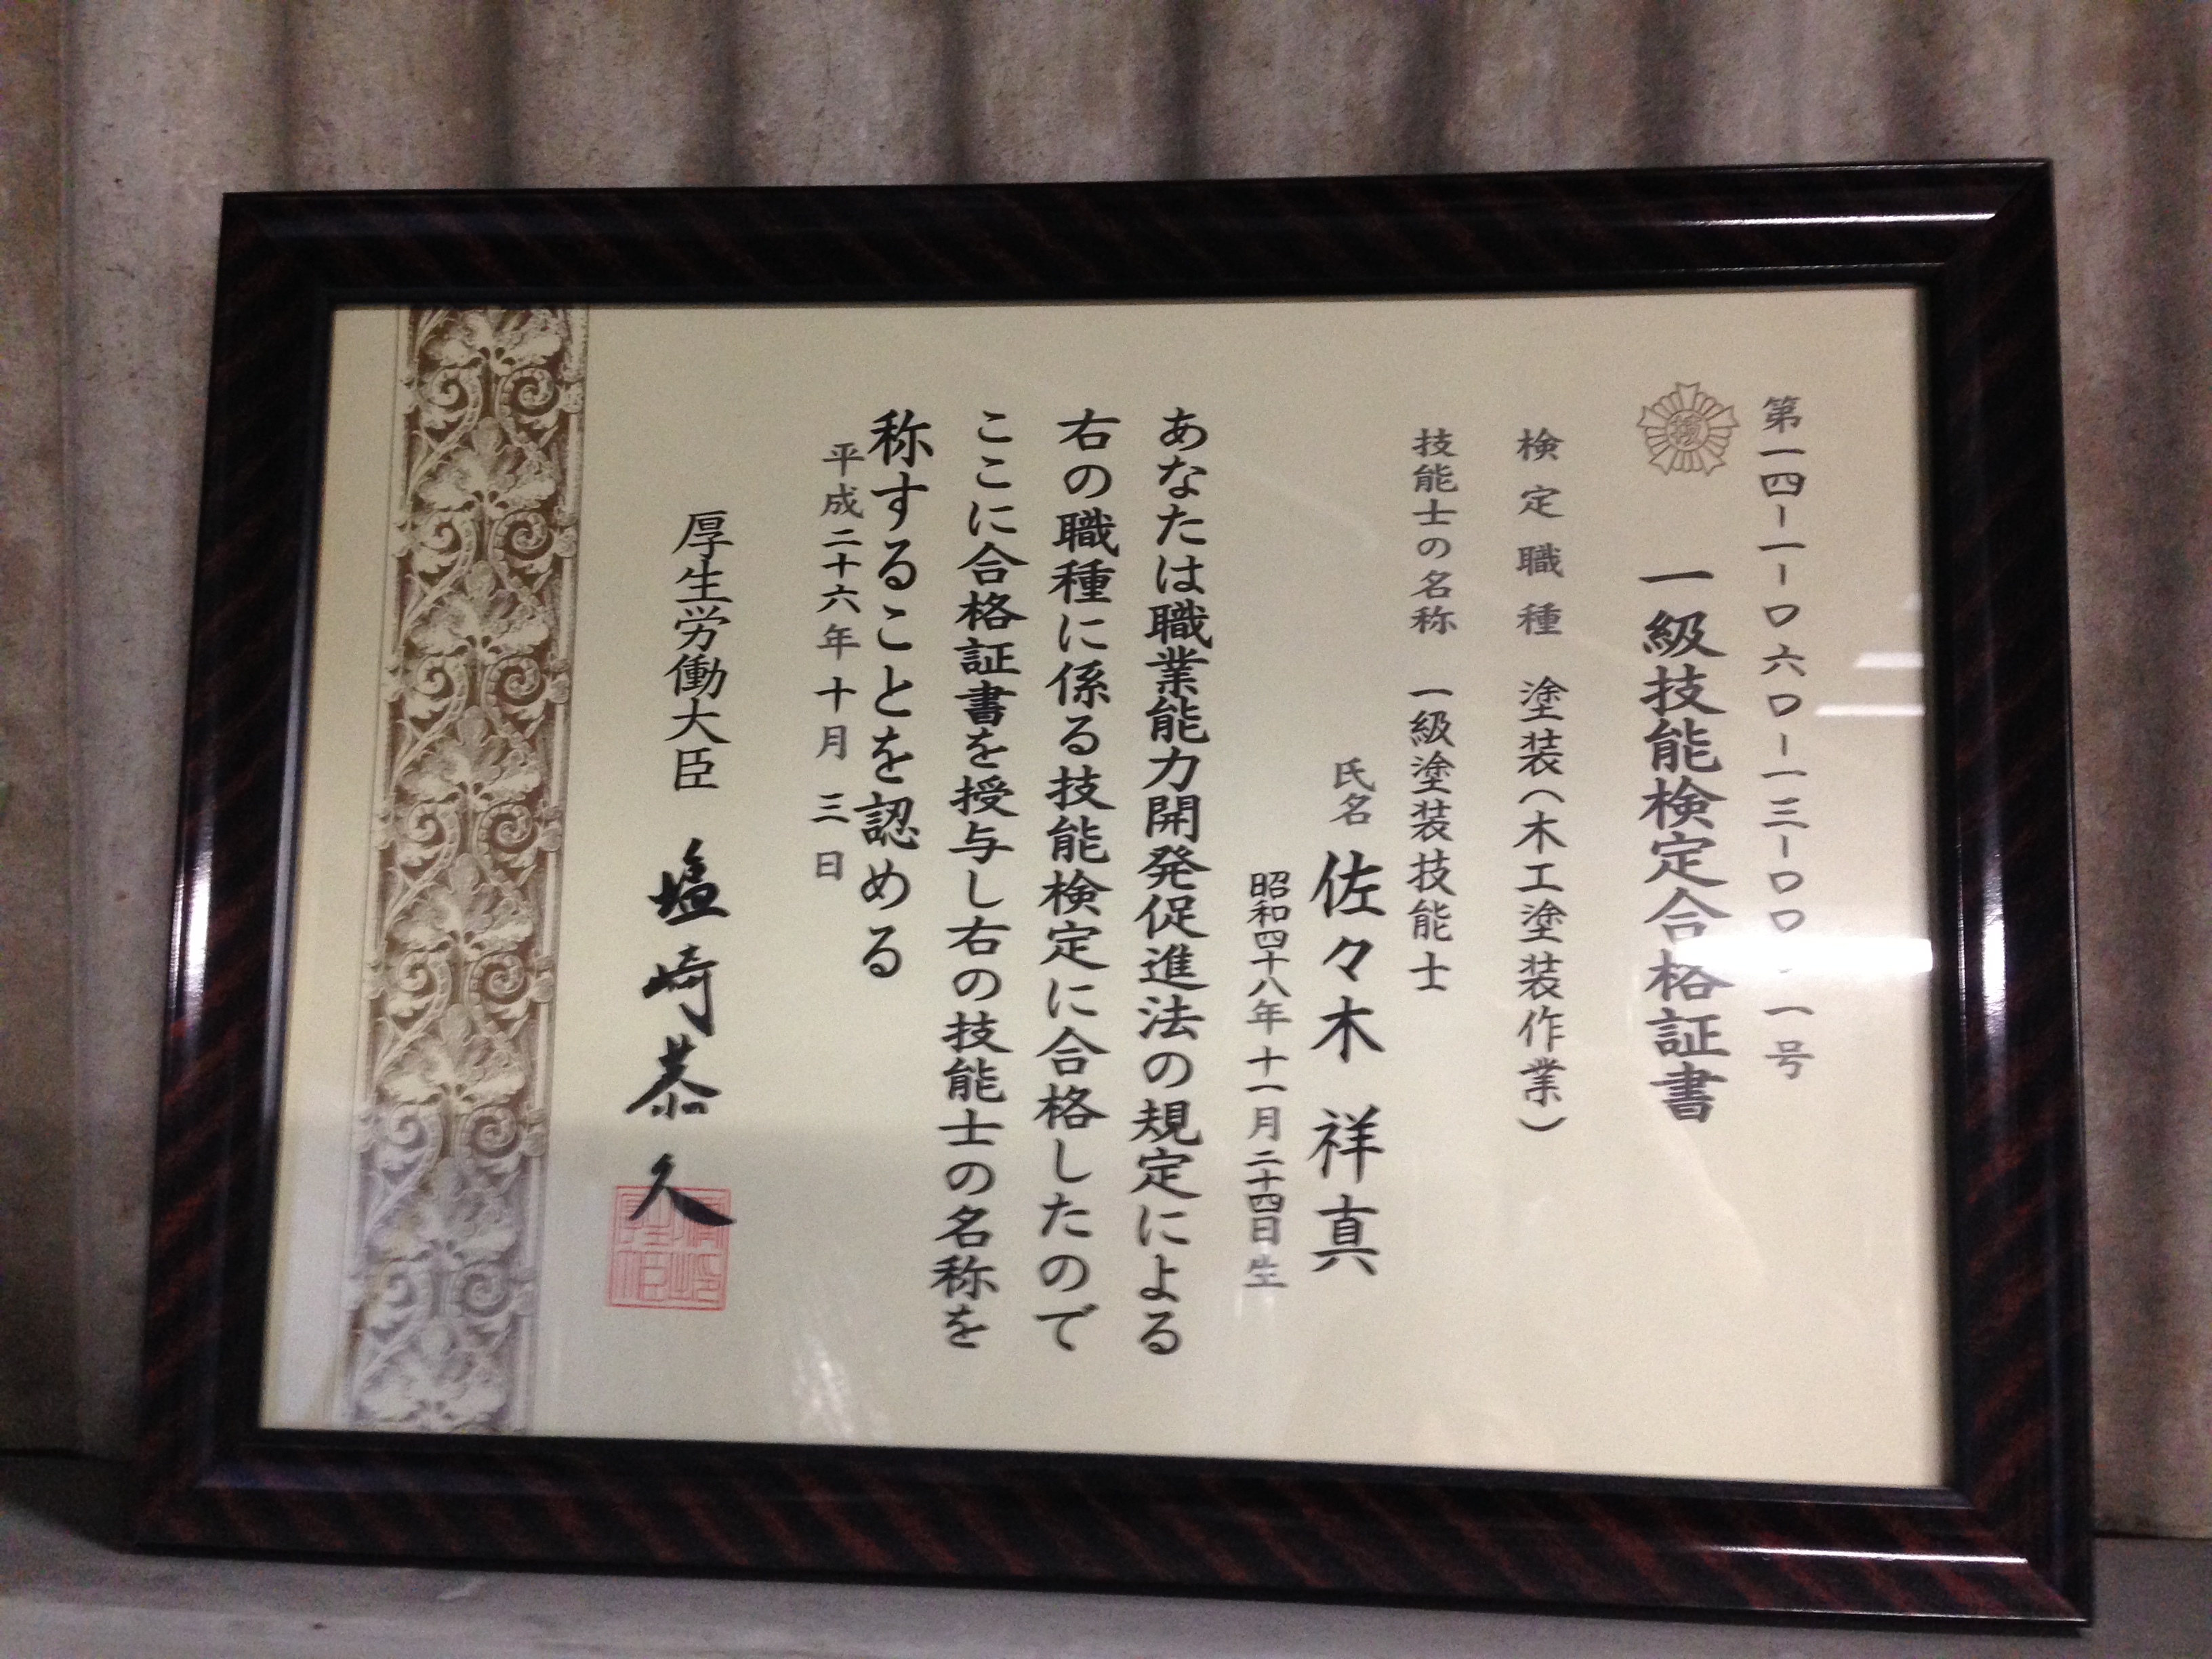 第一四-一-〇六〇-一三-〇〇 一号
一級技能検定合格証書
検定職種 塗装(木工塗装作業)
技能士の名称 一級塗装技能士
氏名 佐々木 祥真
昭和四十八年十一月二十四日生
あなたは職業能力開発促進法の規定による
右の職種に係る技能検定に合格したので
ここに合格証書を授与し右の技能士の名称を
称することを認める
平成二十六年十月三日
厚生労働大臣 塩崎恭久